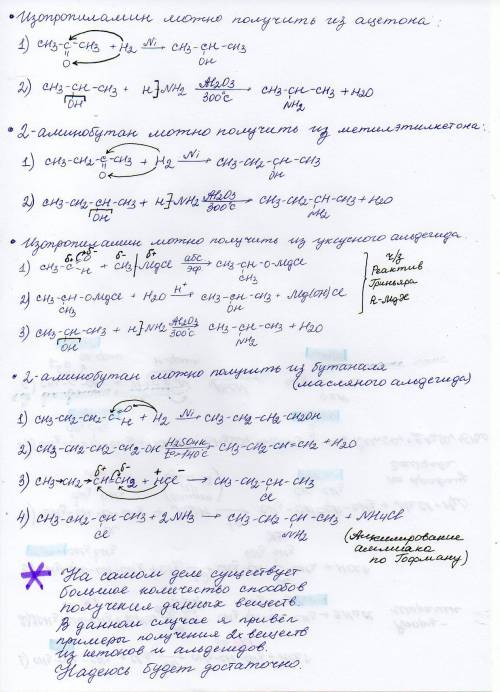 • Изопропиламин можно получить из ацетона:
1) CH3-C-CH3 + H2 Ni→ CH3-CH-CH3
O OH
2) CH3-CH-CH3 + H NH2 Al2O3 300°C→ CH3-CH-CH3 + H2O
OH NH2
• 2-аминобутан можно получить из метилэтилкетона:
1) CH3-CH2-C-CH3 + H2 Ni→ CH3-CH2-CH-CH3
O OH
2) CH3-CH2-CH-CH3 + H NH2 Al2O3 300°C→ CH3-CH2-CH-CH3 + H2O
OH NH2
• Изопропиламин можно получить из уксусного альдегида.
1) CH3-C O H + CH3 MgCl абс эф→ CH3-CH-O-MgCl
δ+ δ- δ- δ+ CH3
ч/з
Реактив
Гриньяра
R-MgX
2) CH3-CH-O-MgCl + H2O H+→ CH3-CH-CH3 + Mg(OH)Cl
CH3 OH
3) CH3-CH-CH3 + H NH2 Al2O3 300°C→ CH3-CH-CH3 + H2O
OH NH2
• 2-аминобутан можно получить из бутаналя
(масляного альдегида)
1) CH3-CH2-CH2-C O H + H2 Ni→ CH3-CH2-CH2-CH2OH
2) CH3-CH2-CH2-CH2-OH H2SO4к t>140°C→ CH3-CH2-CH=CH2 + H2O
3) CH3→CH2→CH=CH2 + HCl → CH3-CH2-CH-CH3
δ+ δ- + - Cl
4) CH3-CH2-CH-CH3 + 2NH3 → CH3-CH2-CH-CH3 + NH4Cl
Cl NH2
(Алкилирование
аммиака
по Гофману)
* На самом деле существует
большое количество способов
получения данных веществ.
В данном случае я привёл
примеры получения 2х веществ
из кетонов и альдегидов.
Надеюсь будет достаточно.